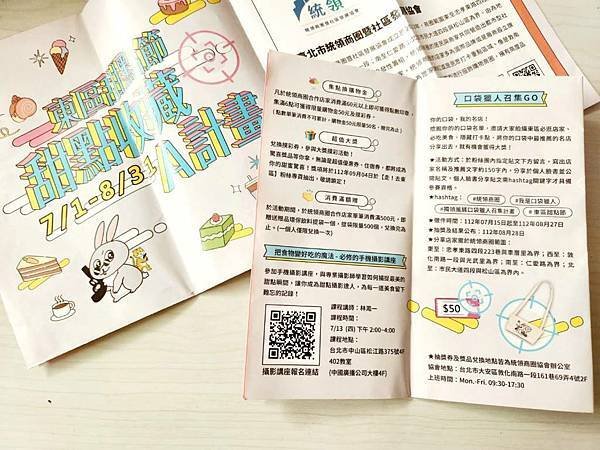 東區甜點節
甜點收藏
A計畫
7/1-8/31
統領
臺北市統領商圈暨社區發展協會
集點換購物金
凡於統領商圈合作店家消費滿60元以上即可獲得點數印章，
集滿6點可獲得限量購物金50元及摸彩券。
超值大獎
兌換摸彩券，參與大獎摸彩活動！
驚喜獎品等你拿，無論是超值優惠券、住宿券，都將成為
你的甜蜜驚喜！獎項將於112年09月04日於【走！去東
區】粉絲專頁抽出，敬請鎖定！
消費滿額贈
於活動期間，於統領商圈合作店家單筆消費滿500元，即
贈送贈品環保飲料提袋一個，提袋限量500個，兌換完為
止。(一個人僅限兌換一次)
把食物變好吃的魔法 - 必修的手機攝影講座
參加手機攝影講座，與專業攝影師學習如何捕捉最美的
甜點瞬間，讓你成為甜點攝影達人，為每一道美食留下
難忘的記錄！
課程講師：林苑一
課程時間：
7/13 (四) 下午 2:00-4:00
課程地點：
台北市中山區松江路375號4F
402教室
(中國廣播公司大樓4F)
攝影講座報名連結
口袋獵人召集GO
你的口袋，我的名店！
挖掘你的的口袋名單，邀請大家拍攝東區必逛店家、
必吃美食、隱藏打卡點，將你口袋中最推薦的名店
分享出去，就有機會獲得大獎！
★活動方式：於粉絲團內指定貼文下方留言，寫出店
家名稱及推薦文字約150字內，分享於個人臉書並公
開貼文，個人臉書分享貼文需hashtag關鍵字才具備
參賽資格。
★hashtag：#統領商圈 #我是口袋獵人
#獨領風騷口袋獵人召集計畫 #東區甜點節
★徵件時間：112年07月15日起至112年08月27日
★抽獎及結果公布：112年08月28日
★分享店家需於統領商圈範圍：
東至：忠孝東路四段223巷與東豐街為界；西至：敦
化南路一段與光武里為界；南至：仁愛路為界；北
至：市民大道四段與松山區為界內。
$50
★抽獎券及獎品兌換地點皆為統領商圈協會辦公室
協會地點：台北市大安區敦化南路一段161巷69弄4號2F
上班時間：Mon.-Fri. 09:30-17:30